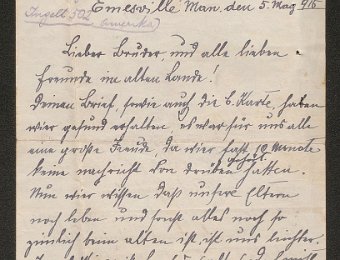 Ernesville Man. den 5. May 915
Amerika
Lieber Bruder, und alle lieben
Freunde im alten Lande!
Deinen Brief, sowie auch die C. Karte, haben
wier gesund erhalten, es war für uns alle
eine große Freude da wier fast 10 Monate
keine nachricht von druben hatten.
Nun wier wissen daß unsere Eltern
noch leben und sonst alles noch so
ziemlich beim alten ist, ist uns leichter.